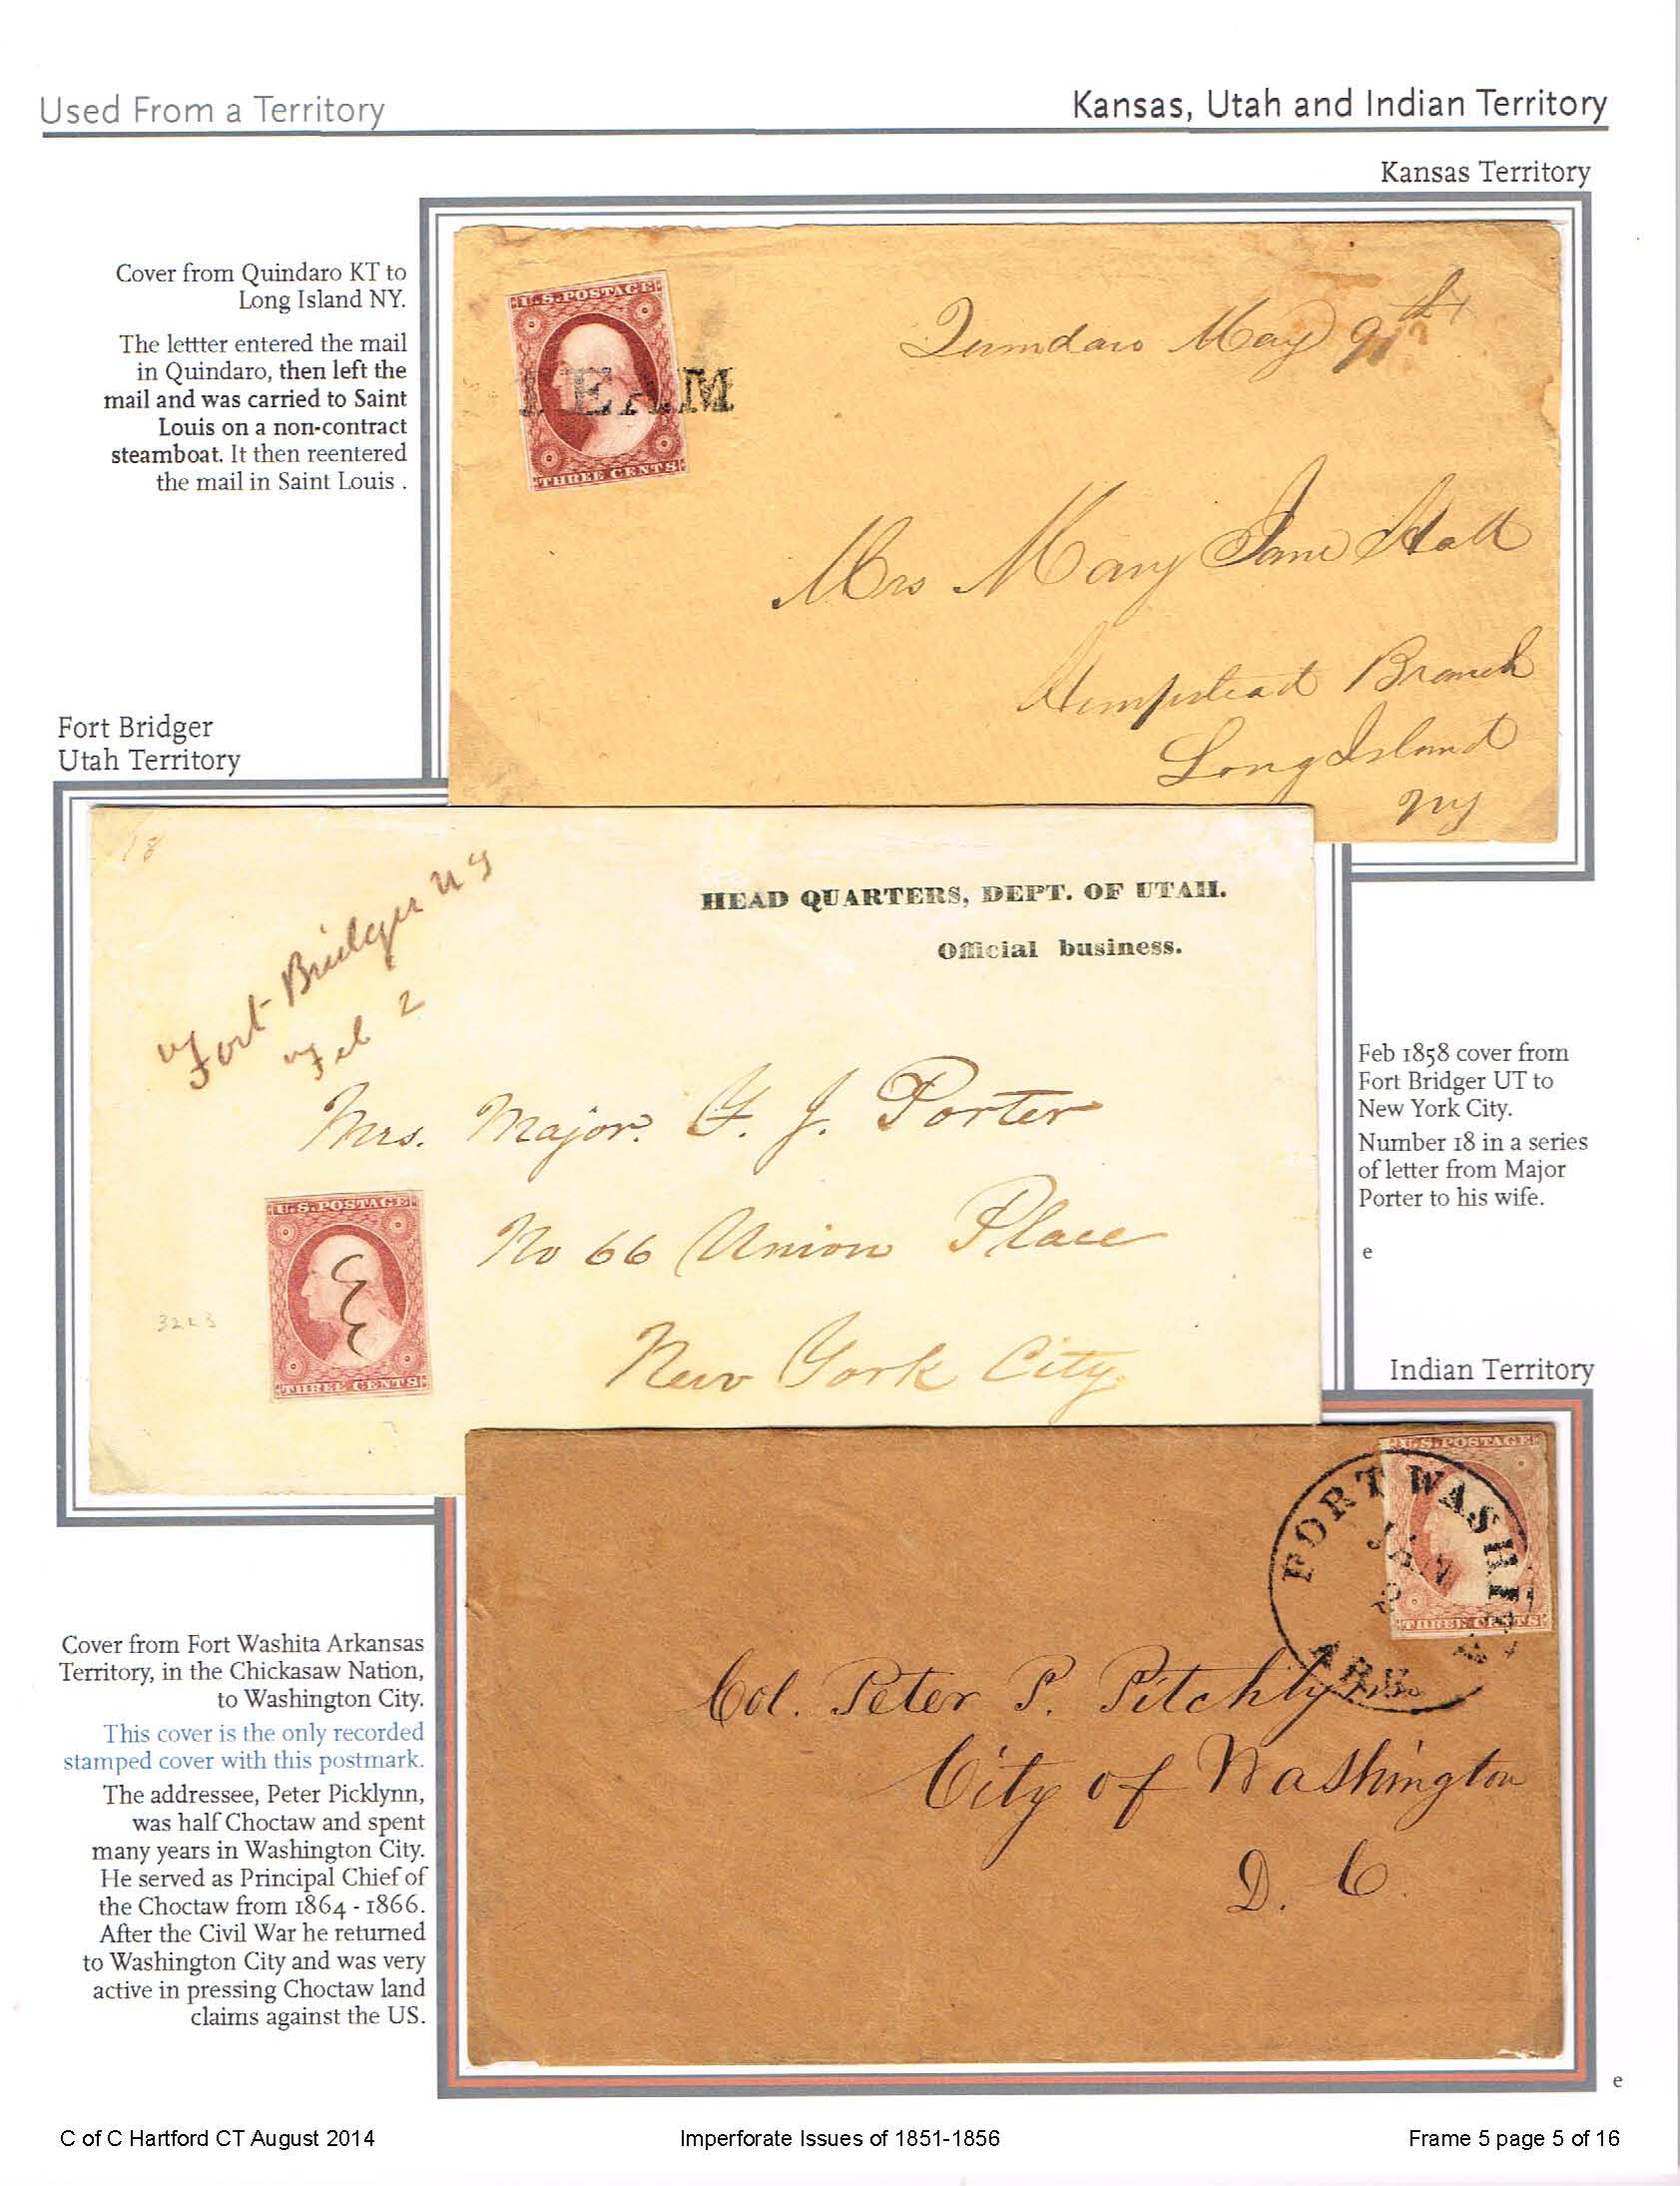 Used From a Territory
Kansas, Utah and Indian Territory
Kansas Territory
Cover from Quindaro KT to
Long Island NY.
The lettter entered the mail
in Quindaro, then left the
mail and was carried to Saint
Louis on a non-contract
steamboat. It then reentered
the mail in Saint Louis .
U.S. POSTAGE
EAM
THREE CENTS
Quindaro May 9th
Mrs Mary Jane Hall
Hempstead Branch
Long Island
NY
Fort Bridger
Utah Territory
18
Fort Bridger U T
Feb 2
HEAD QUARTERS, DEPT. OF UTAH.
Official business.
Mrs. Major. F. J. Porter
No 66 Union Place
New York City.
U.S. POSTAGE
THREE CENTS
3223
Feb 1858 cover from
Fort Bridger UT to
New York City.
Number 18 in a series
of letter from Major
Porter to his wife.
e
Indian Territory
U.S. POSTAGE
THREE CENTS
FORT WASHITA
ARK.
Col. Peter P. Pitchlynn
City of Washington
D. C.
Cover from Fort Washita Arkansas
Territory, in the Chickasaw Nation,
to Washington City.
This cover is the only recorded
stamped cover with this postmark.
The addressee, Peter Picklynn,
was half Choctaw and spent
many years in Washington City.
He served as Principal Chief of
the Choctaw from 1864 - 1866.
After the Civil War he returned
to Washington City and was very
active in pressing Choctaw land
claims against the US.
e
C of C Hartford CT August 2014
Imperforate Issues of 1851-1856
Frame 5 page 5 of 16